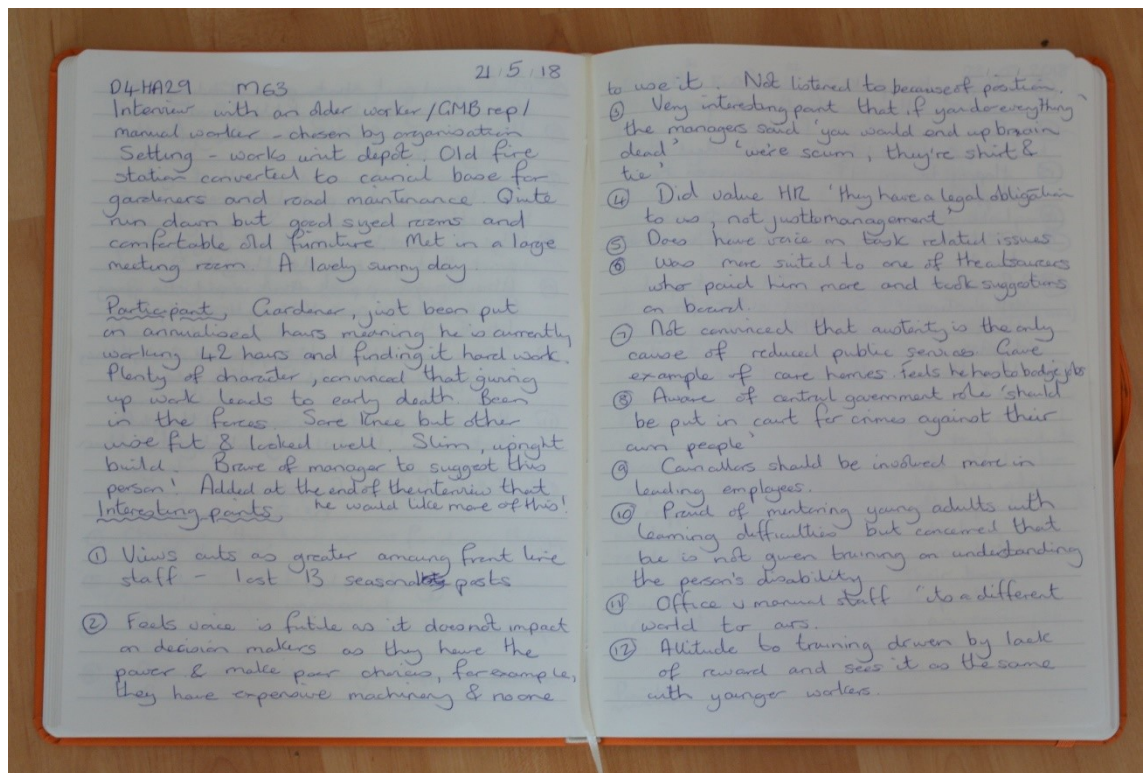 21.5.18
D4HA29 M63
Interview with an older worker / GMB rep /
manual worker - chosen by organisation
Setting - works unit depot. Old fire
station converted to council base for
gardeners and road maintenance. Quite
run down but good sized rooms and
comfortable old furniture Met in a large
meeting room. A lovely sunny day.
Participant, Gardener, just been put
on annualised hours meaning he is currently
working 42 hours and finding it hard work.
Plenty of character, convinced that giving
up work leads to early death. Been
in the forces. Sore knee but other
wise fit & looked well. Slim, upright
build. Brave of manager to suggest this
person! Added at the end of the interview that
Interesting points he would like more of this!
① Views cuts as greater among front line
staff - lost 13 seasonal posts
② Feels voice is futile as it does not impact
on decision makers as they have the
power & make poor choices, for example,
they have expensive machinery & no one
to use it. Not listened to because of position.
③ Very interesting point that if you do everything
the managers said 'you would end up brain
dead' 'we're scum, they're shirt &
tie'
④ Did value HR 'they have a legal obligation
to us, not just to management'
⑤ Does have voice on task related issues
⑥ Was more suited to one of the
who paid him more and took suggestions
on board.
⑦ Not convinced that austerity is the only
cause of reduced public services. Gave
example of care homes. Feels he has to bodge jobs
⑧ Aware of central government role 'should
be put in court for crimes against their
own people'
⑨ Councillors should be involved more in
leading employees.
⑩ Proud of mentoring young adults with
learning difficulties but concerned that
he is not given training on understanding
the person's disability
⑪ Office v manual staff 'its a different
world to ours.
⑫ Attitude to training driven by lack
of reward and sees it as the same
with younger workers.